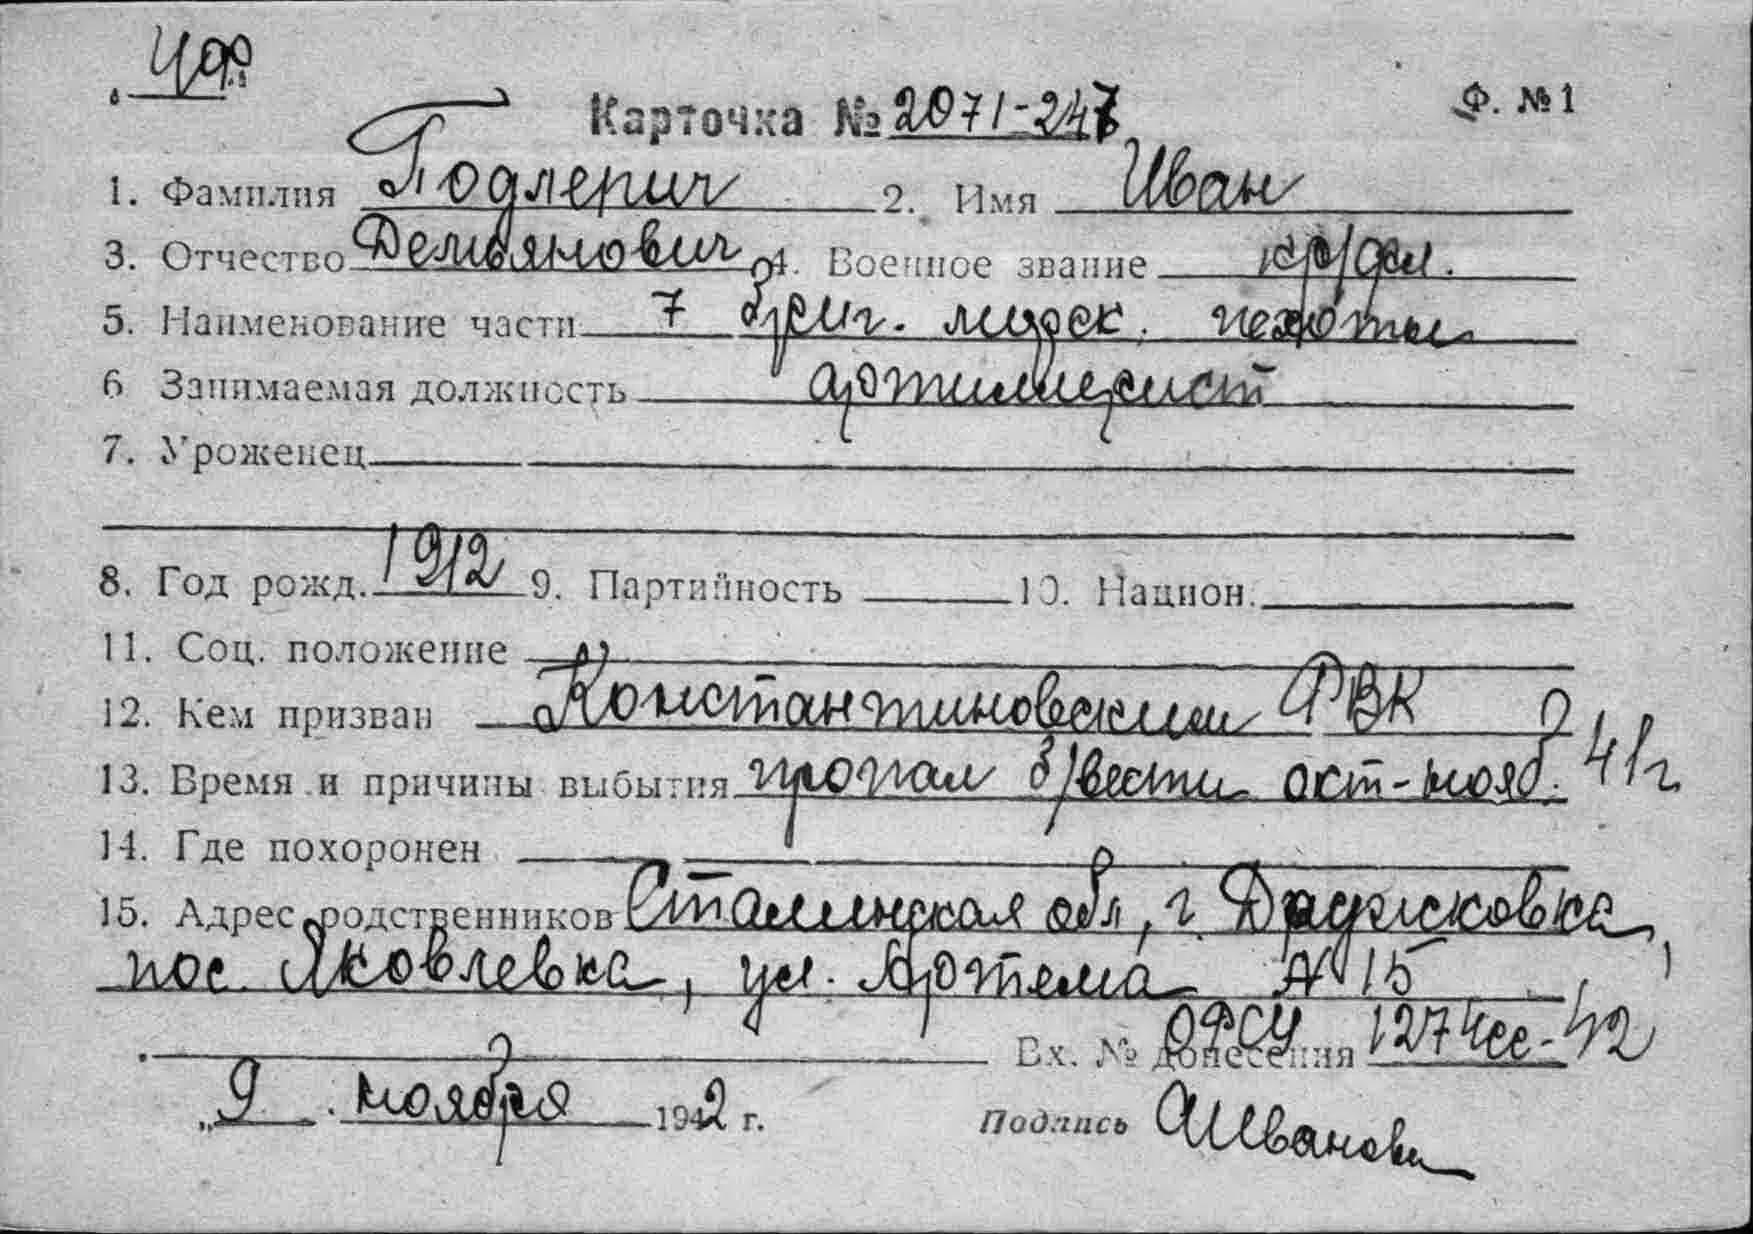 ЧФ
Карточка № 2071-247 Ф. № 1
1. Фамилия Годлерич 2. Имя Иван
3. Отчество Демьянович 4. Военное звание кр/фл.
5. Наименование части 7 бриг. морск. пехоты
6 Занимаемая должность артиллерист
7. Уроженец
8. Год рожд. 1912 9. Партийность 10. Национ.
11. Соц. положение
12. Кем призван Константиновским РВК
13. Время и причины выбытия пропал б/вести окт-нояб. 41г
14. Где похоронен
15. Адрес родственников Сталинская обл, г. Дружковка,
пос. Яковлевка, ул. Артема № 15
Вх. № донесения ОРСУ 1274сс-42
„9 ноября 1942 г. Подпись